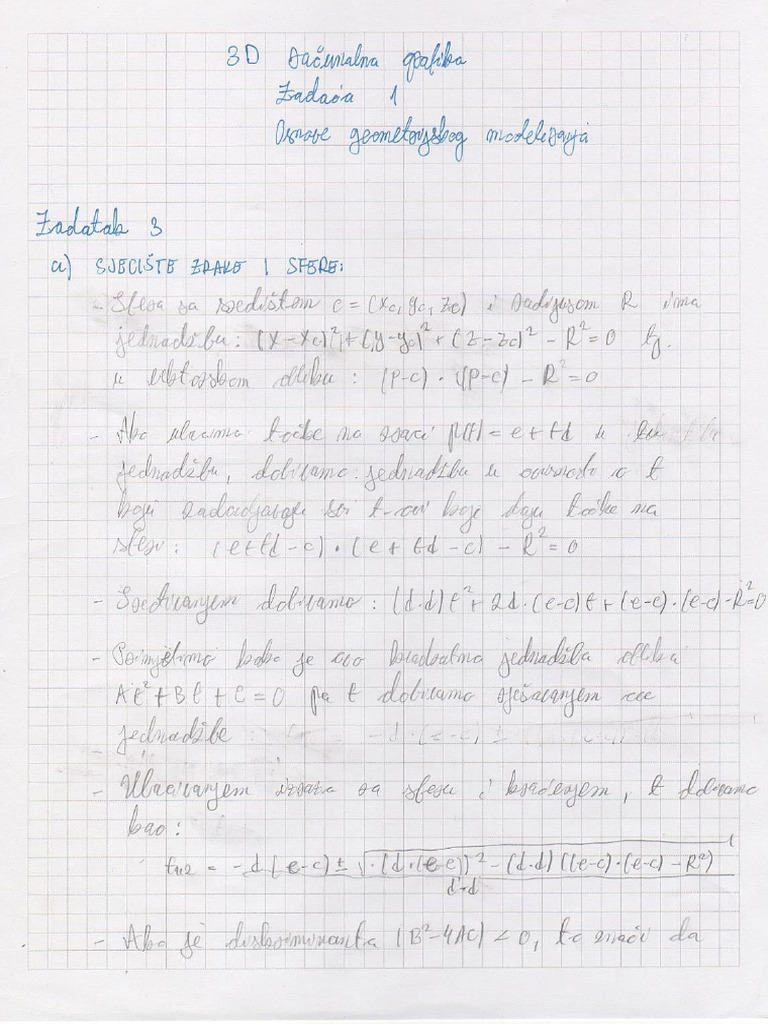 3D računalna grafika
Zadaća 1
Osnove geometrijskog modeliranja
Zadatak 3
a) SJECIŠTE ZRAKE I SFERE:
- Sfera sa središtem c = (xc, yc, zc) i radijusom R ima
jednadžbu: (x-xc)²+(y-yc)²+(z-zc)² - R² = 0 tj.
u vektorskom obliku: (p-c)·(p-c) - R² = 0
- Ako uvrstimo točke na zraci p(t) = e+td u tu
jednadžbu, dobivamo jednadžbu u ovisnosti o t
koju zadovoljavaju svi t-ovi koji daju točke na
sferi: (e+td-c)·(e+td-c) - R² = 0
- Sređivanjem dobivamo: (d·d)t²+2d·(e-c)t+(e-c)·(e-c)-R²=0
- Primjetimo kako je ovo kvadratna jednadžba oblika
At²+Bt+C=0 pa t dobivamo rješavanjem ove
jednadžbe
- Uvrštavanjem izraza za sferu i kraćenjem, t dobivamo
kao:
t1,2 = -d·(e-c) ± √(d·(e-c))² - (d·d)((e-c)·(e-c) - R²)
d·d
- Ako je diskriminanta (B²-4AC) < 0, to znači da